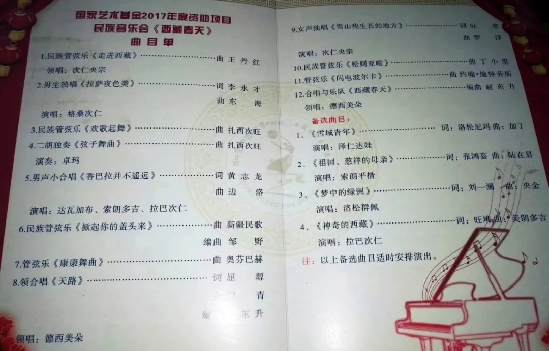 国家艺术基金2017年度资助项目
民族音乐会《西藏春天》
曲目单
1.民族管弦乐《走进西藏》 曲 王丹红
领唱：次仁央宗
2.男生独唱《拉萨夜色美》 词 李永才
曲 东海
演唱：格桑次仁
3.民族管弦乐《欢歌起舞》 曲 扎西次旺
4.二胡独奏《弦子舞曲》 曲 扎西次旺
演奏：卓玛
5.男声小合唱《香巴拉并不遥远》 词 黄志龙
曲 边洛
演唱：达瓦加布、索朗多吉、拉巴次仁
6.民族管弦乐《掀起你的盖头来》 曲 新疆民歌
编曲 邹野
7.管弦乐《康康舞曲》 曲 奥芬巴赫
8.领合唱《天路》 词 屈源
青
东升
领唱：德西美朵
9.女声独唱《雪山我生长的地方》 词
曲 罗泽
演唱：次仁央宗
10.民族管弦乐《松阔亚啦》 曲 丁小里
11.管弦乐《闪电波尔卡》 曲 约翰·施特劳斯
12.合唱与乐队《西藏春天》 编曲 东升
领唱：德西美朵
备选曲目：
1、《雪域青年》 词：洛松尼玛 曲：加丁
演唱：泽仁达娃
2、《祖国，慈祥的母亲》 词：张鸿喜 曲：陆在易
演唱：索朗平措
3、《梦中的绿洲》 词：刘一澜 曲：央金
演唱：洛松群佩
4、《神奇的西藏》 词：旺 曲：美朗多吉
演唱：拉巴次仁
注：以上备选曲目适时安排演出。